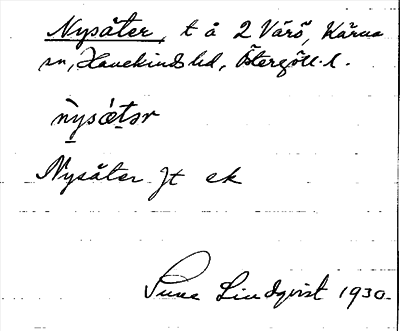 Nysäter, t å 2 Värö, Kärna
sn, Hanekinds hd, Östergötl. l.
nysätər
Nysäter Jt ek
Sune Lindqvist 1930.